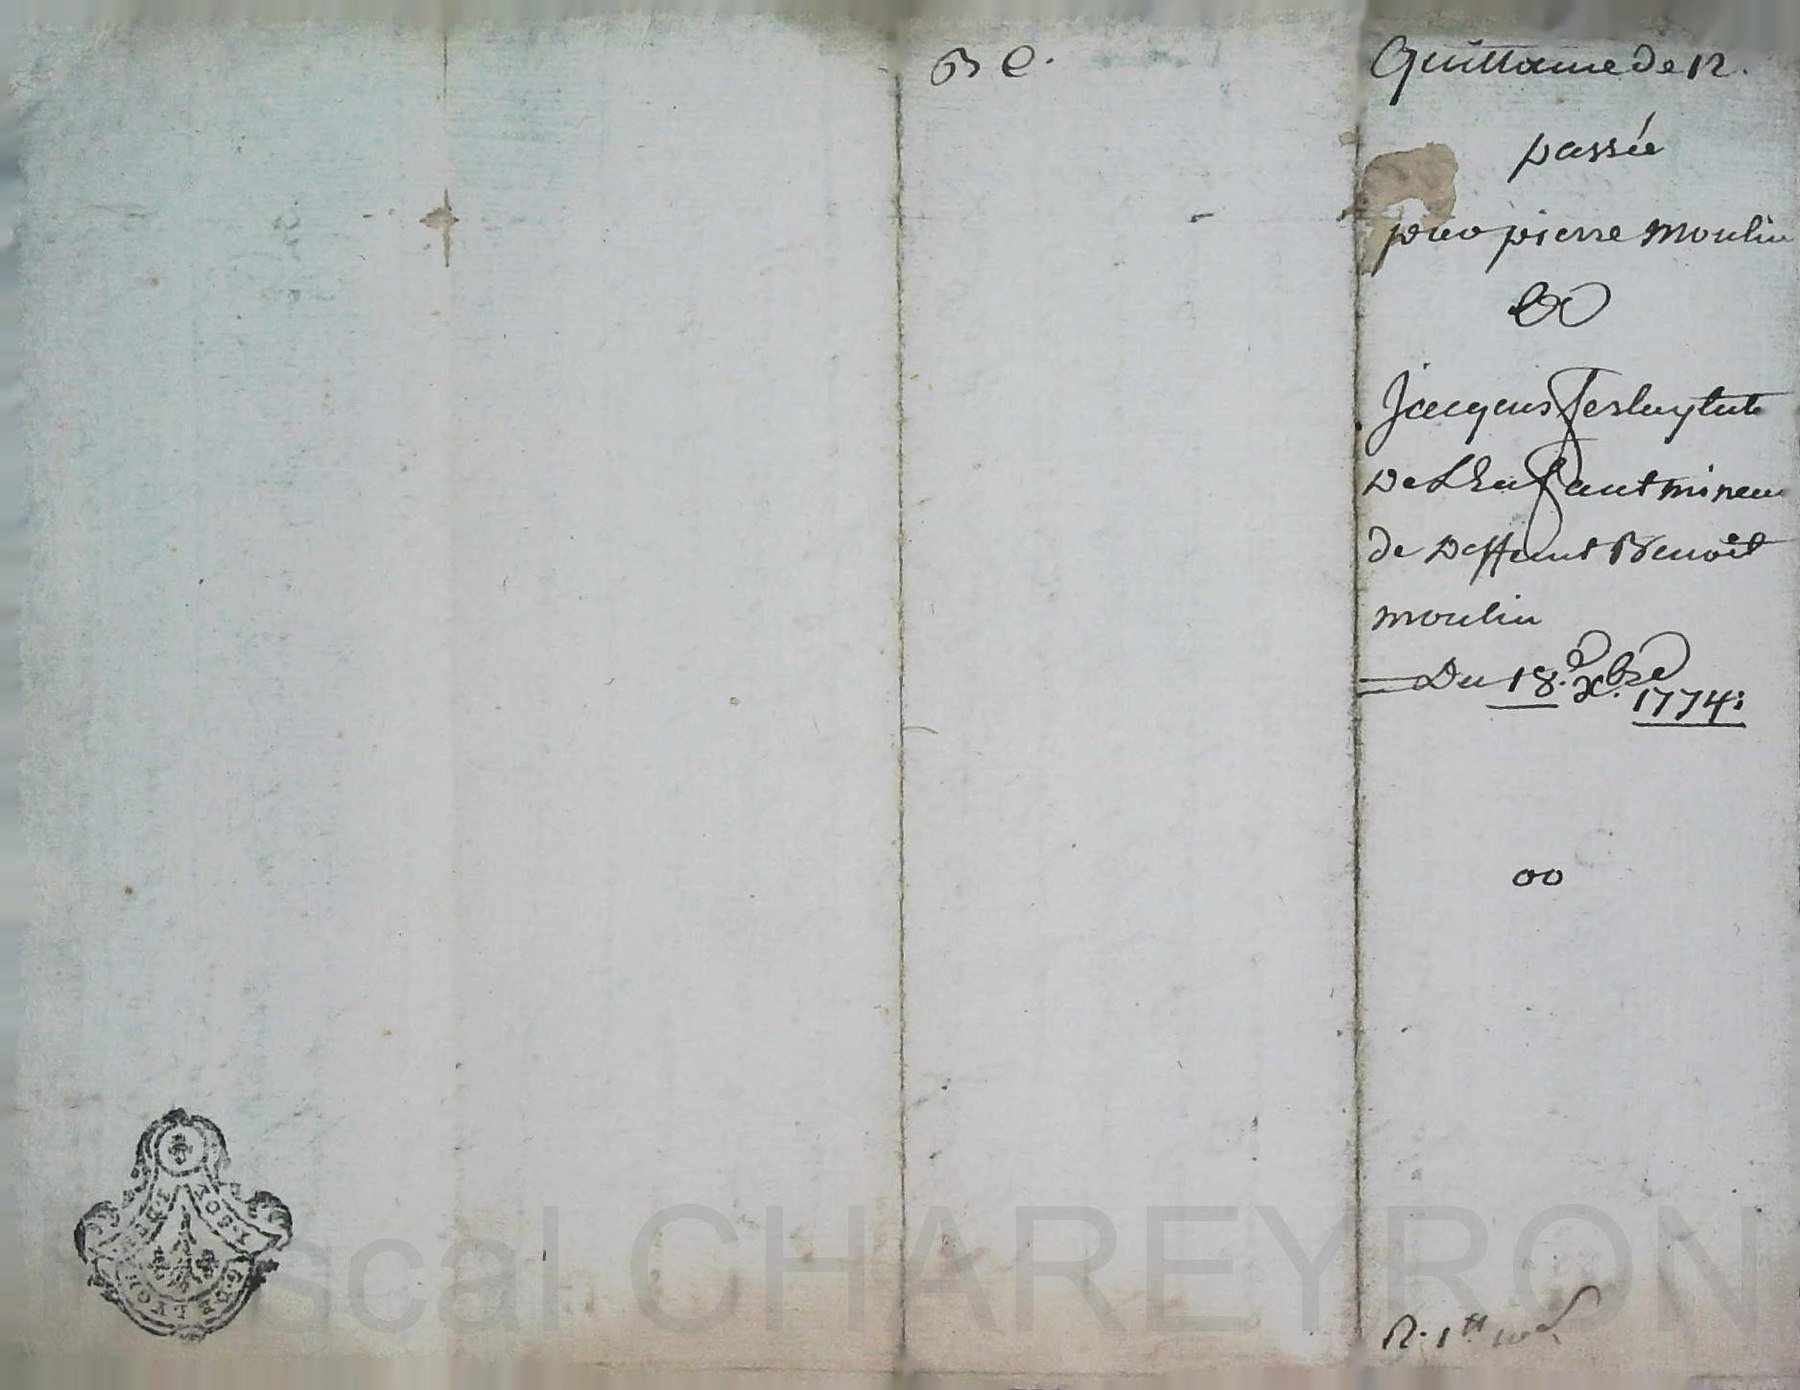 B C.
Quittance de 12.
passée
par pierre Moulin
a
Jacques tuteur
De L'Enfant mineur
de Deffunt Benoît
moulin
Du 18. xbre 1774:
00
R. 1tt
scal CHAREYRON